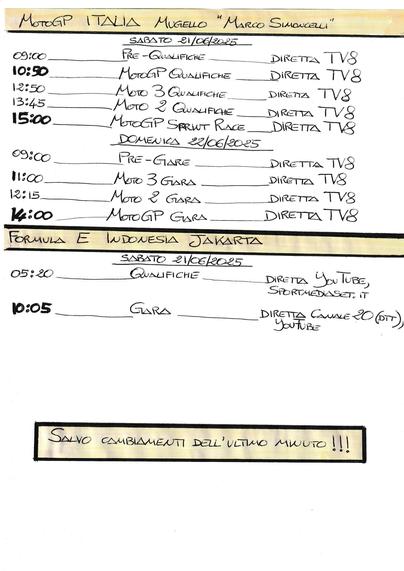 MOTOGP ITALIA MUGELLO "MARCO SIMONCELLI"
SABATO 21/06/2025
09:00 PRE-QUALIFICHE DIRETTA TV8
10:50 MOTOGP QUALIFICHE DIRETTA TV8
12:50 MOTO 3 QUALIFICHE DIRETTA TV8
13:45 MOTO 2 QUALIFICHE DIRETTA TV8
15:00 MOTOGP SPRINT RACE DIRETTA TV8
DOMENICA 22/06/2025
09:00 PRE-GARE DIRETTA TV8
11:00 MOTO 3 GARA DIRETTA TV8
12:15 MOTO 2 GARA DIRETTA TV8
14:00 MOTOGP GARA DIRETTA TV8
FORMULA E INDONESIA JAKARTA
SABATO 21/06/2025
05:20 QUALIFICHE DIRETTA YOUTUBE,
SPORTMEDIASET.IT
10:05 GARA DIRETTA CANALE 20 (DTT),
YOUTUBE
SALVO CAMBIAMENTI DELL'ULTIMO MINUTO!!!